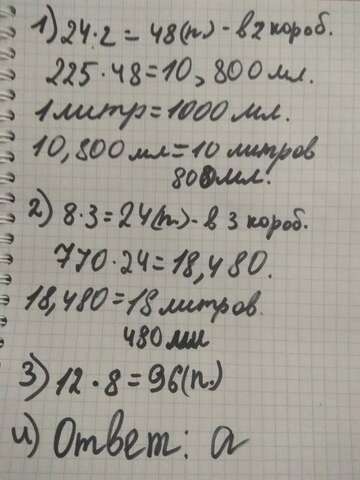 1) 24·2=48(п)-в 2 короб.
225·48=10,800 мл.
1 литр=1000 мл.
10,800 мл=10 литров
800 мл.
2) 8·3=24(п)-в 3 короб.
770·24=18,480.
18,480=18 литров
480 мл
3) 12·8=96(п.)
4) Ответ: а